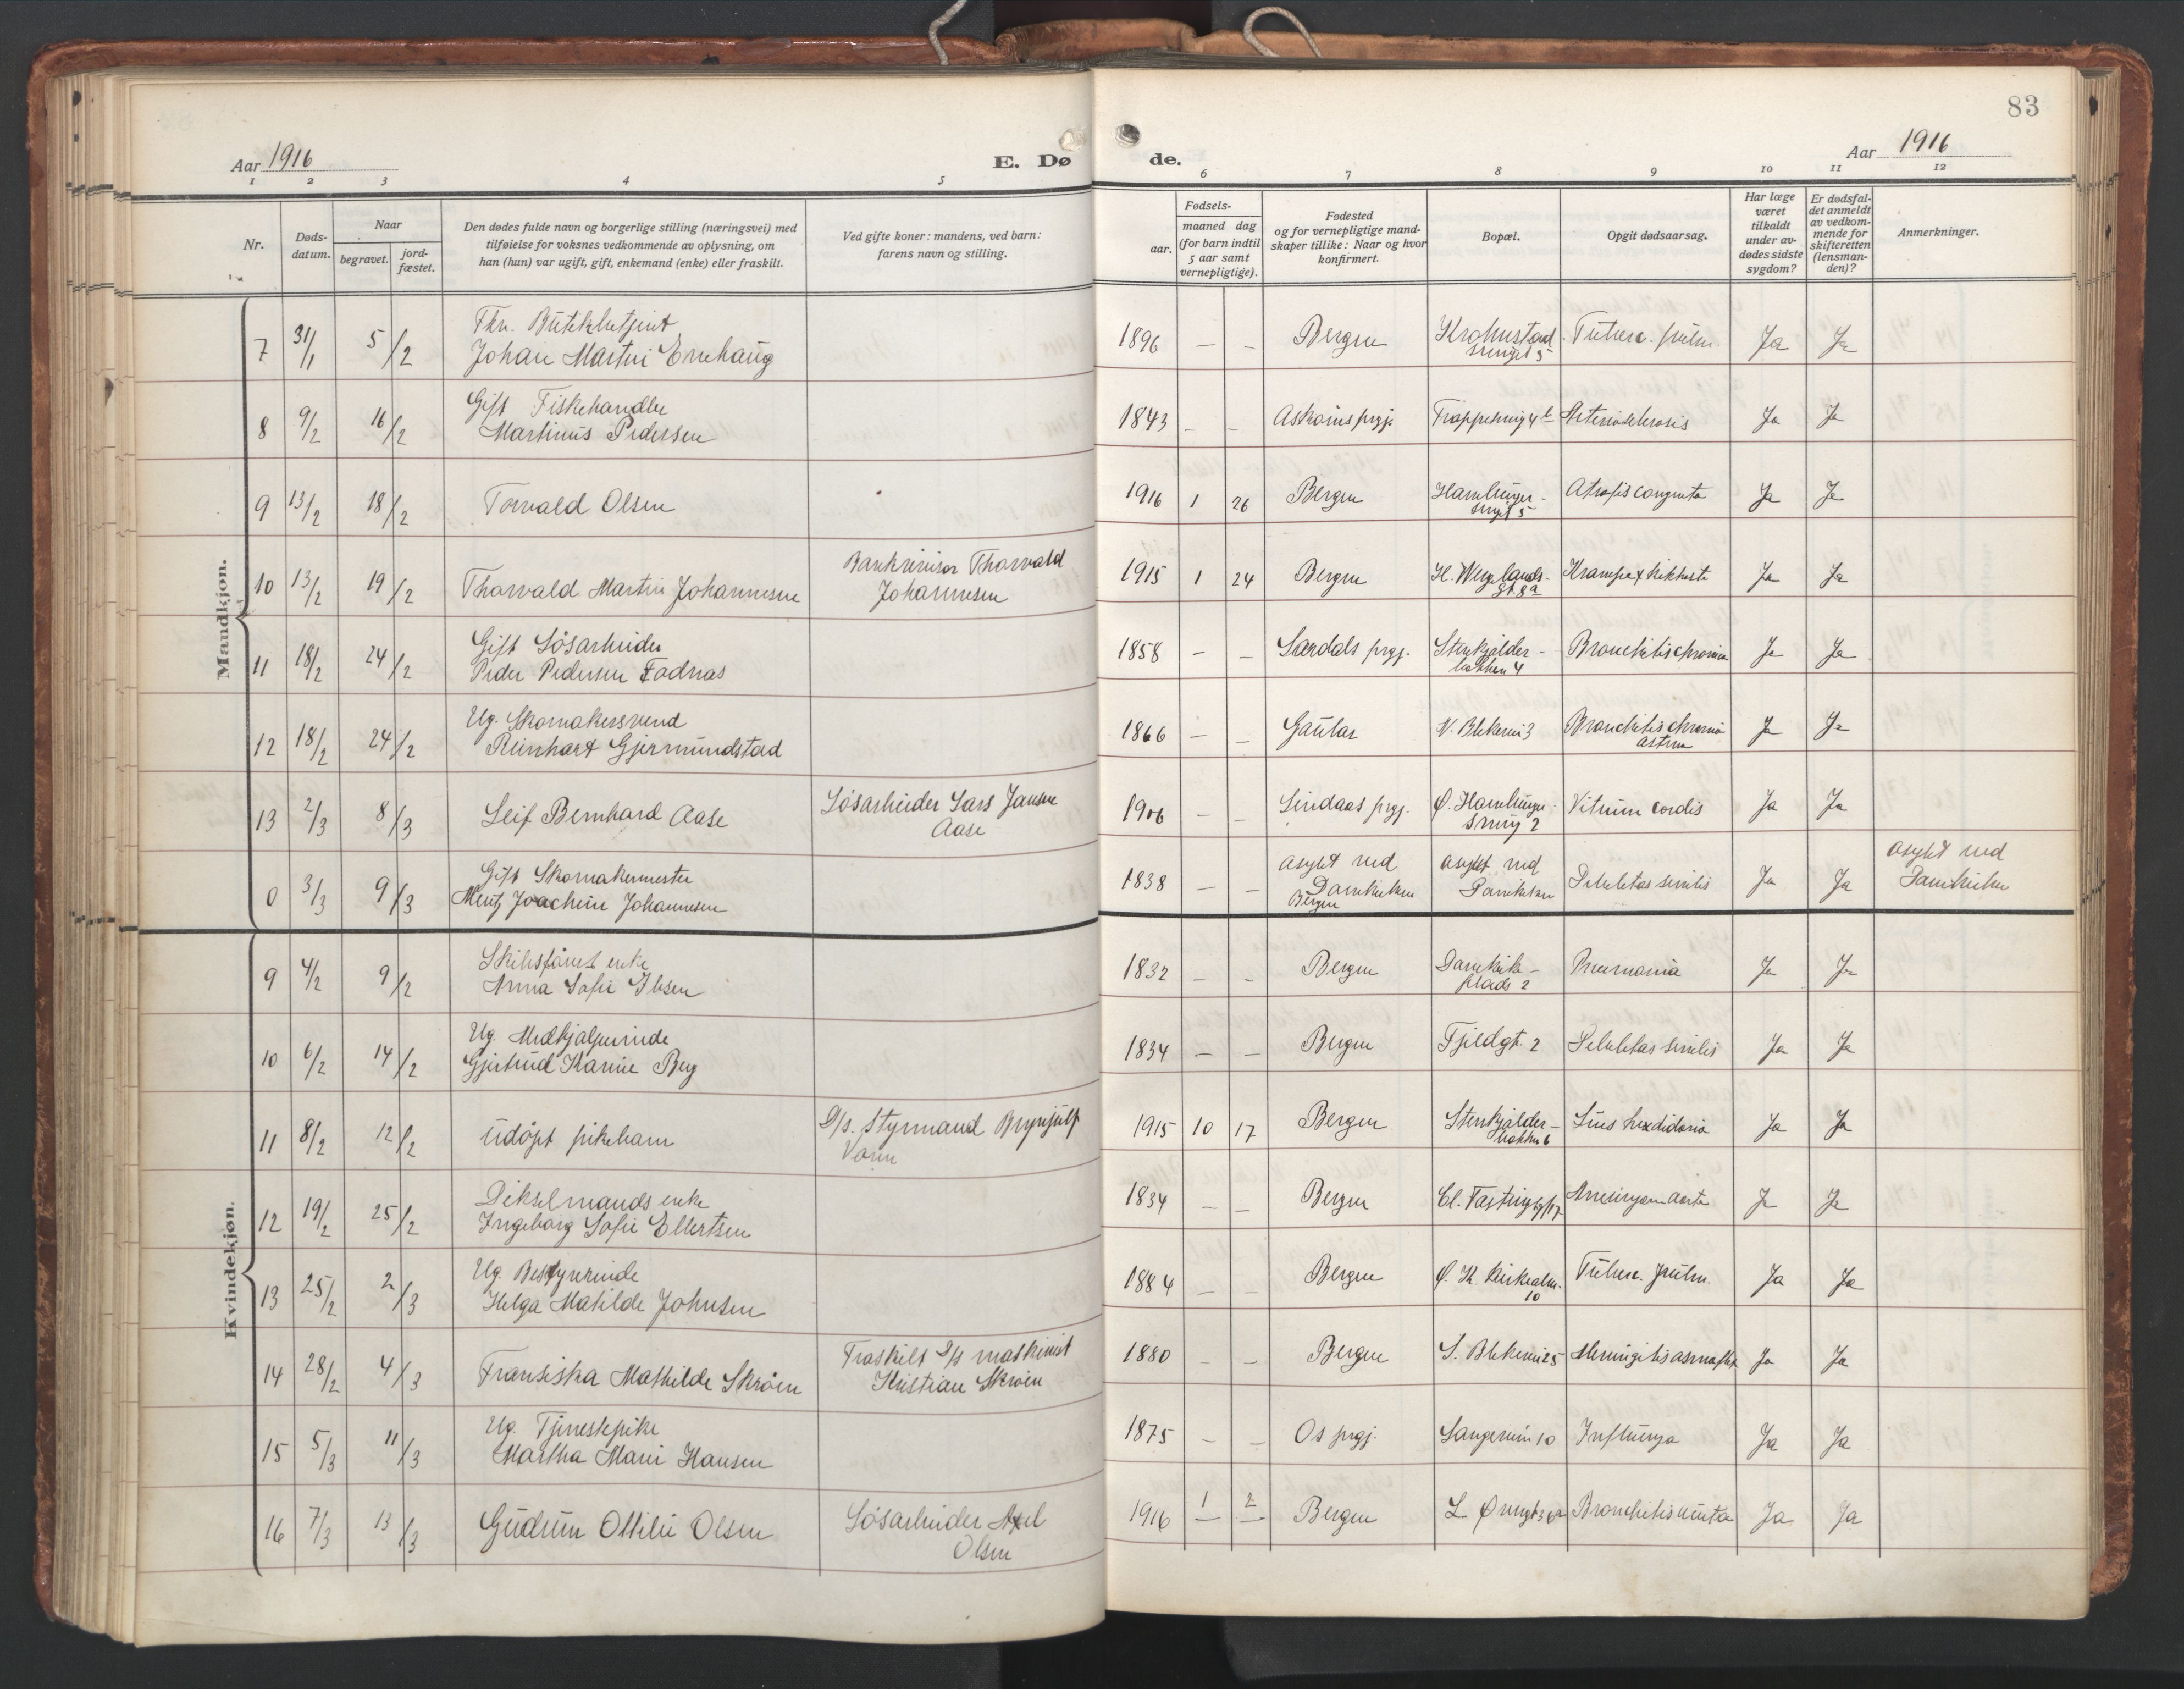 83
Aar 1916
E. Dø
de.
Aar 1916
1 2 3 4 5
6 7 8 9 10 11 12
Nr.
Døds-
datum.
Naar
begravet.
jord-
fæstet.
Den dødes fulde navn og borgerlige stilling (næringsvei) med
tilføielse for voksnes vedkommende av oplysning, om
han (hun) var ugift, gift, enkemand (enke) eller fraskilt.
Ved gifte koner: mandens, ved barn:
farens navn og stilling.
Fødsels-
aar.
maaned dag
(for barn indtil
5 aar samt
vernepligtige).
Fødested
og for vernepligtige mand-
skaper tillike: Naar og hvor
konfirmert.
Bopæl.
Opgit dødsaarsag.
Har læge
været
tilkaldt
under av-
dødes sidste
sygdom?
Er dødsfal-
det anmeldt
av vedkom-
mende for
skifteretten
(lensman-
den)?
Anmerkninger.
Mandkjøn.
7 31/1 5/2
Johan Martin
1896 — — Bergen Tuberc. pulm. Ja Ja
8 9/2 16/2 Gift Fiskehandler
Martinus Pedersen
1843 — — Askøens prgj. Arteriosclerosis Ja Ja
9 13/2 18/2 Torvald Olsen
1916 1 26 Bergen Ja Ja
10 13/2 19/2 Thorvald Martin Johannesen
Bankrevisor Thorvald
Johannesen
1915 1 24 Bergen H. Wergelands-
gt. 8a
Krampe & Kikhoste Ja Ja
11 18/2 24/2 Gift Løsarbeider
Peder Pedersen Fodnæs
1858 — — prgj. Stenkjelder-
bakken 4
Bronchitis chronica Ja Ja
12 18/2 24/2 Ug. Skomakersvend
Reinhart Gjermundstad
1866 — — Gaular Bronchitis chronica
Ja Ja
13 2/3 8/3 Leif Bernhard Aase
Løsarbeider Lars Jansen
Aase
1906 — — Lindaas prgj. Vitium cordis Ja Ja
0 3/3 9/3 Gift Skomakermester
Mentz Joachim Johannesen
1838 — — asylet ved
Domkirken
Bergen
asylet ved
Domkirken
Debilitas senilis Ja Ja
asylet ved
Domkirken
Kvindekjøn.
9 4/2 9/2 enke
Anna Sofie Ibsen
1832 — — Bergen Domkirke-
plads 2
Pneumonia Ja Ja
10 6/2 14/2 Ug.
Gjertrud Karine Berg
1834 — — Bergen Fjeldgt. 2 Debilitas senilis Ja Ja
11 8/2 12/2 Udøpt pikebarn
D/s. Styrmand Brynjulf
1915 10 17 Bergen Stenkjelder-
bakken 6
Ja Ja
12 19/2 25/2 enke
Ingeborg Sofie Ellertsen
1834 — — Bergen Ja Ja
13 25/2 2/3 Ug. Bestyrerinde
Helga Matilde Johnsen
1884 — — Bergen
10
Tuberc. pulm. Ja Ja
14 28/2 4/3 Fransiska Mathilde Skrøen
Fraskilt D/s maskinist
Kristian Skrøen
1880 — — Bergen Ja Ja
15 5/3 11/3 Ug. Tjenestepike
Martha Marie Hansen
1875 — — Os prgj. 10 Influenza Ja Ja
16 7/3 13/3 Gudrun Ottilie Olsen
Løsarbeider Axel
Olsen
1916 1 2 Bergen Bronchitis acuta Ja Ja